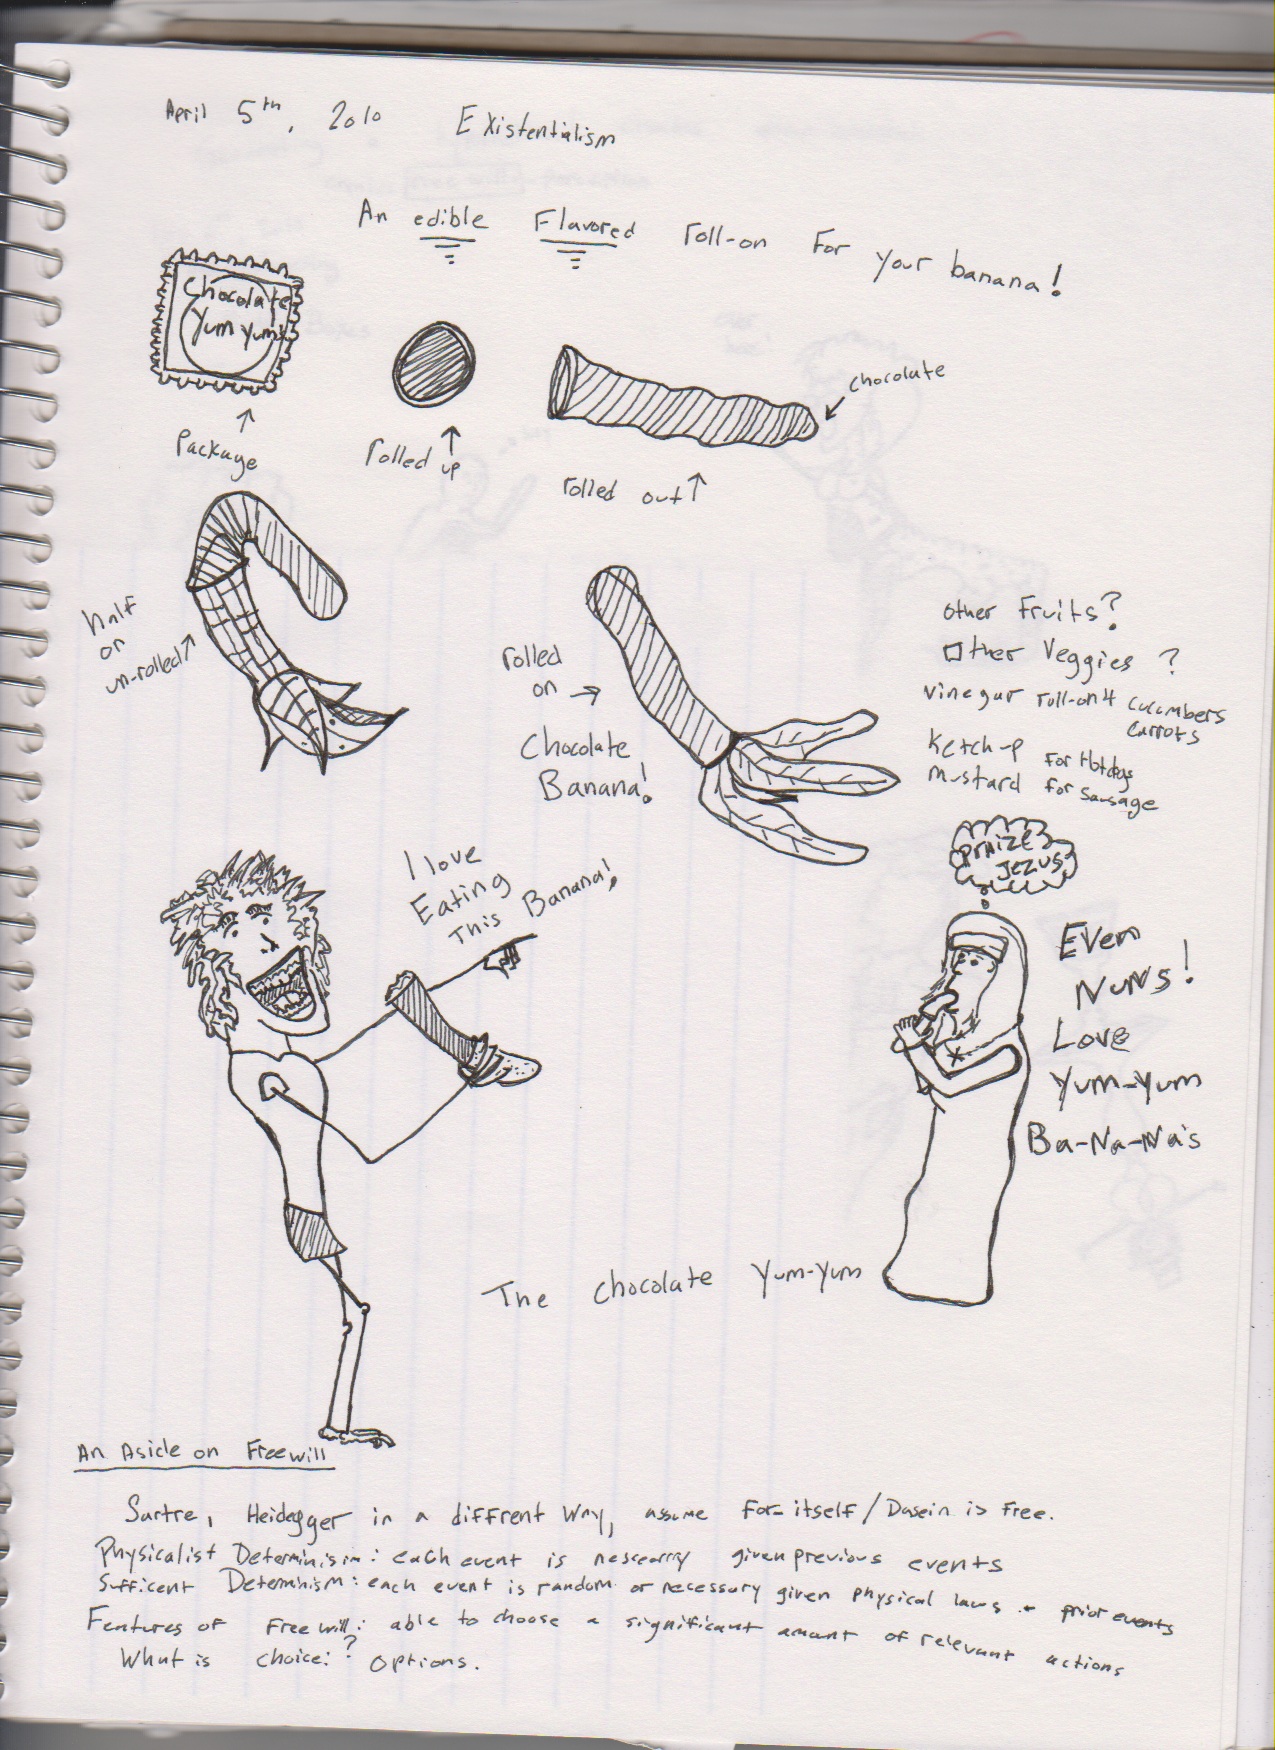 April 5th, 2010 Existentialism
An edible Flavored roll-on For your banana!
Chocolate
Yum Yum's
chocolate
Package
rolled up
rolled out
half
or
un-rolled
rolled
on
Chocolate
Banana!
other Fruits?
Other Veggies ?
vinegar roll-on 4 cucumbers
carrots
Ketch-p For Hotdogs
mustard for Sausage
PRAIZE
JEZUS
I love
Eating
This Banana!
Even
NuNs!
Love
Yum-Yum
Ba-Na-Na's
The Chocolate Yum-Yum
An Aside on Freewill
Sartre, Heidegger in a diffrent way, assume for-itself/Dasein is free.
Physicalist Determinism: each event is nescearry given previous events
Sufficent Determinism: each event is random or necessary given physical laws + prior events
Features of Free will: able to choose a significant amount of relevant actions
What is choice:? options.